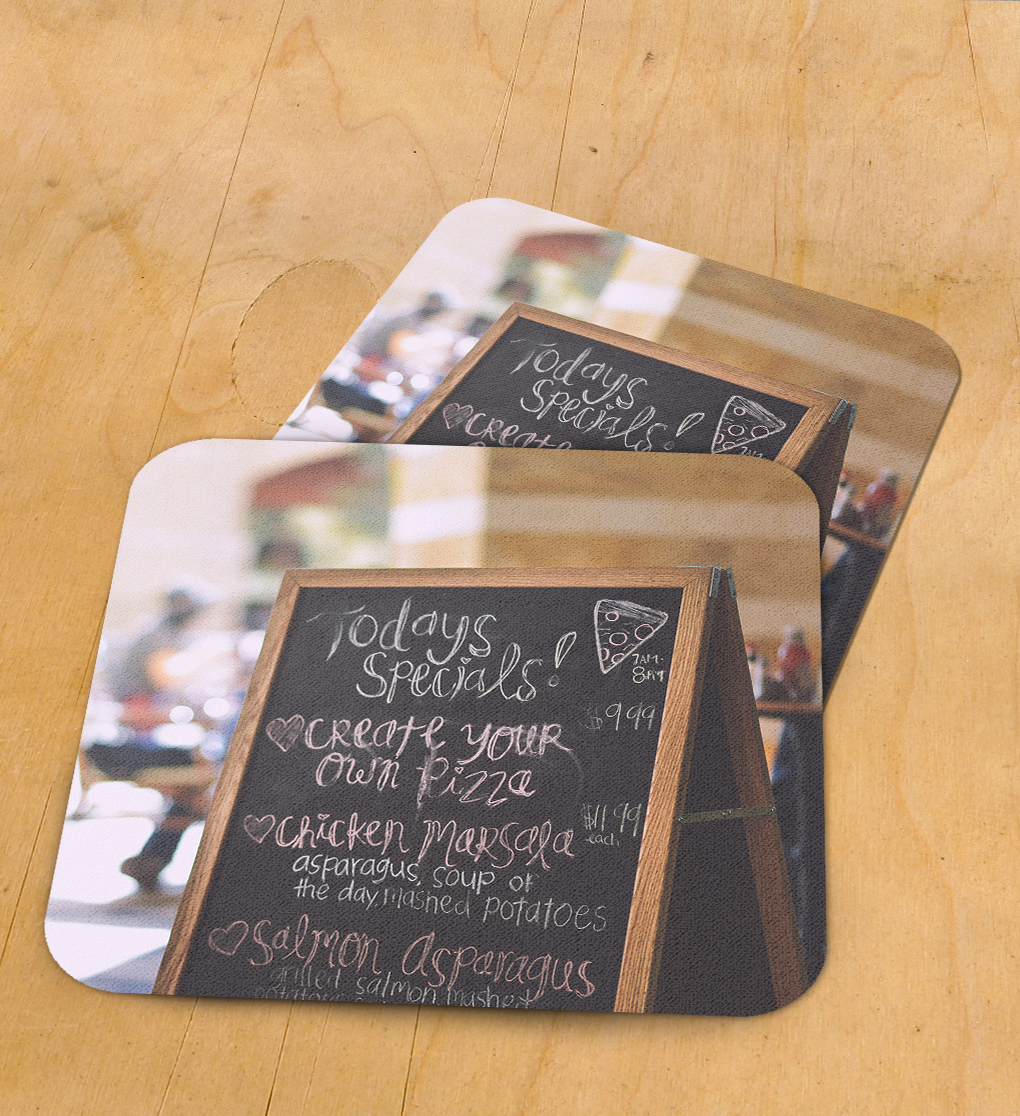 Todays
Specials!
create
Todays
Specials!
7AM-
8PM
create your
$9.99
own Pizza
chicken Marsala
$11.99
each
asparagus, soup of
the day, mashed potatoes
Salmon Asparagus
grilled salmon mashed